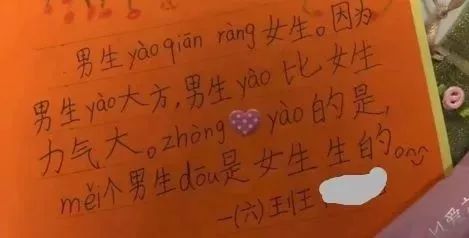 男生yào qiān ràng女生。因为
男生yào大方,男生yào比女生
力气大。zhòng yào的是,
měi个男生dōu是女生生的。
一(六)王